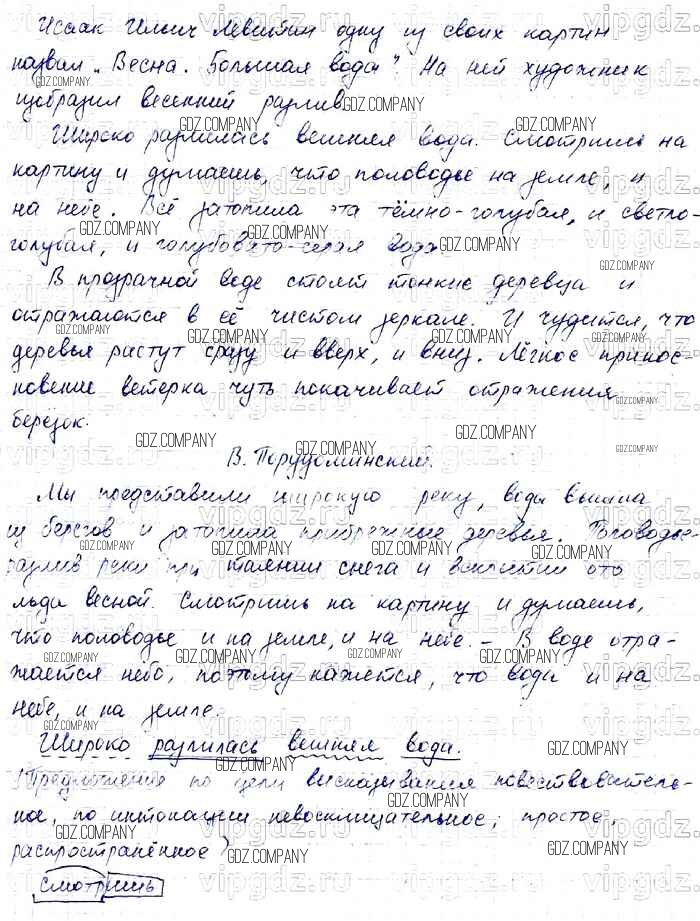 Исаак Ильич Левитан одну из своих картин
назвал „Весна. Большая вода". На ней художник
изобразил весенний разлив.
Широко разлилась вешняя вода. Смотришь на
картину и думаешь, что половодье на земле, и
на небе. Всё затопила эта тёмно-голубая, и светло-
голубая, и голубовато-серая вода.
В прозрачной воде стоят тонкие деревца и
отражаются в её чистом зеркале. И чудится, что
деревья растут сразу и вверх, и вниз. Лёгкое прикос-
новение ветерка чуть покачивает отражения
берёзок.
В. Порудоминский.
Мы представили широкую реку, вода вышла
из берегов и затопила прибрежные деревья. Половодье-
разлив реки при таянии снега и вскрытии ото
льда весной. Смотришь на картину и думаешь,
что половодье и на земле, и на небе. - В воде отра-
жается небо, поэтому кажется, что вода и на
небе, и на земле.
Широко разлилась вешняя вода.
(Предложение по цели высказывания повествователь-
ное, по интонации невосклицательное, простое,
распространённое)
смотришь
GDZ.COMPANY
vipgdz.ru